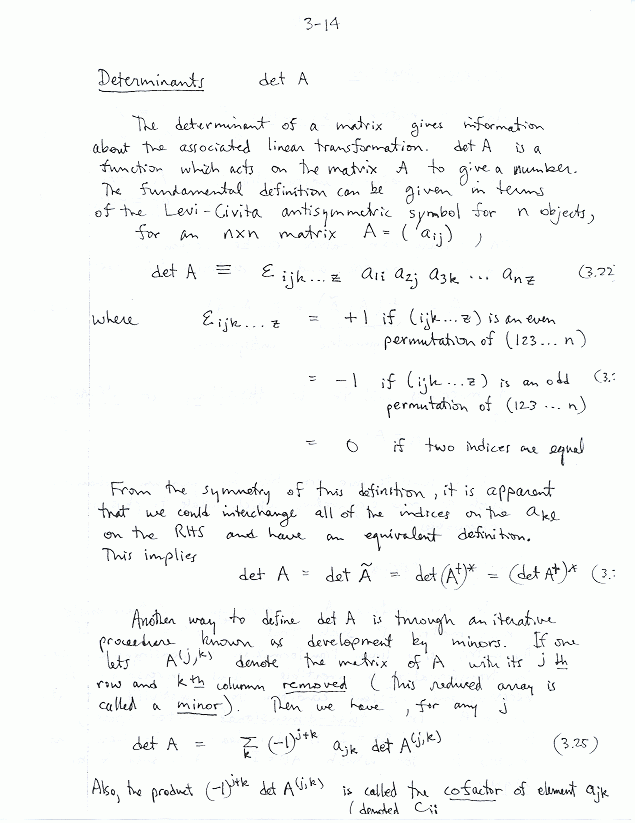 3-14
Determinants det A
The determinant of a matrix gives information
about the associated linear transformation. det A is a
function which acts on the matrix A to give a number.
The fundamental definition can be given in terms
of the Levi-Civita antisymmetric symbol for n objects,
for an n×n matrix A = (a_ij),
det A ≡ ε_ijk...z a_1i a_2j a_3k ... a_nz (3.22
where ε_ijk...z = +1 if (ijk...z) is an even
permutation of (123...n)
= -1 if (ijk...z) is an odd (3.
permutation of (123...n)
= 0 if two indices are equal
From the symmetry of this definition, it is apparent
that we could interchange all of the indices on the a_kl
on the RHS and have an equivalent definition.
This implies
det A = det Ã = det(A†)* = (det A†)* (3.
Another way to define det A is through an iterative
proceedure known as development by minors. If one
lets A^(j,k) denote the matrix of A with its j th
row and kth column removed (this reduced array is
called a minor). Then we have, for any j
det A = Σ_k (-1)^j+k a_jk det A^(j,k) (3.25)
Also, the product (-1)^j+k det A^(j,k) is called the cofactor of element a_jk
(denoted C